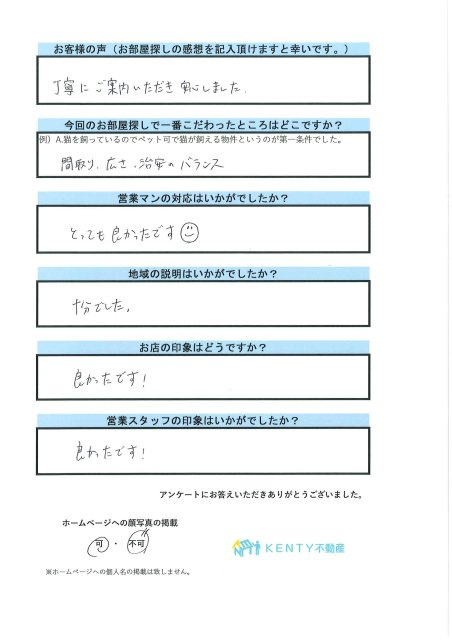 お客様の声(お部屋探しの感想を記入頂けますと幸いです。)
丁寧にご案内いただき安心しました.
今回のお部屋探しで一番こだわったところはどこですか?
例) A.猫を飼っているのでペット可で猫が飼える物件というのが第一条件でした。
間取り、広さ、治安のバランス
営業マンの対応はいかがでしたか?
とっても良かったです☺
地域の説明はいかがでしたか?
十分でした。
お店の印象はどうですか?
良かったです!
営業スタッフの印象はいかがでしたか?
良かったです!
アンケートにお答えいただきありがとうございました。
ホームページへの顔写真の掲載
可 ・ 不可
KENTY不動産
※ホームページへの個人名の掲載は致しません。